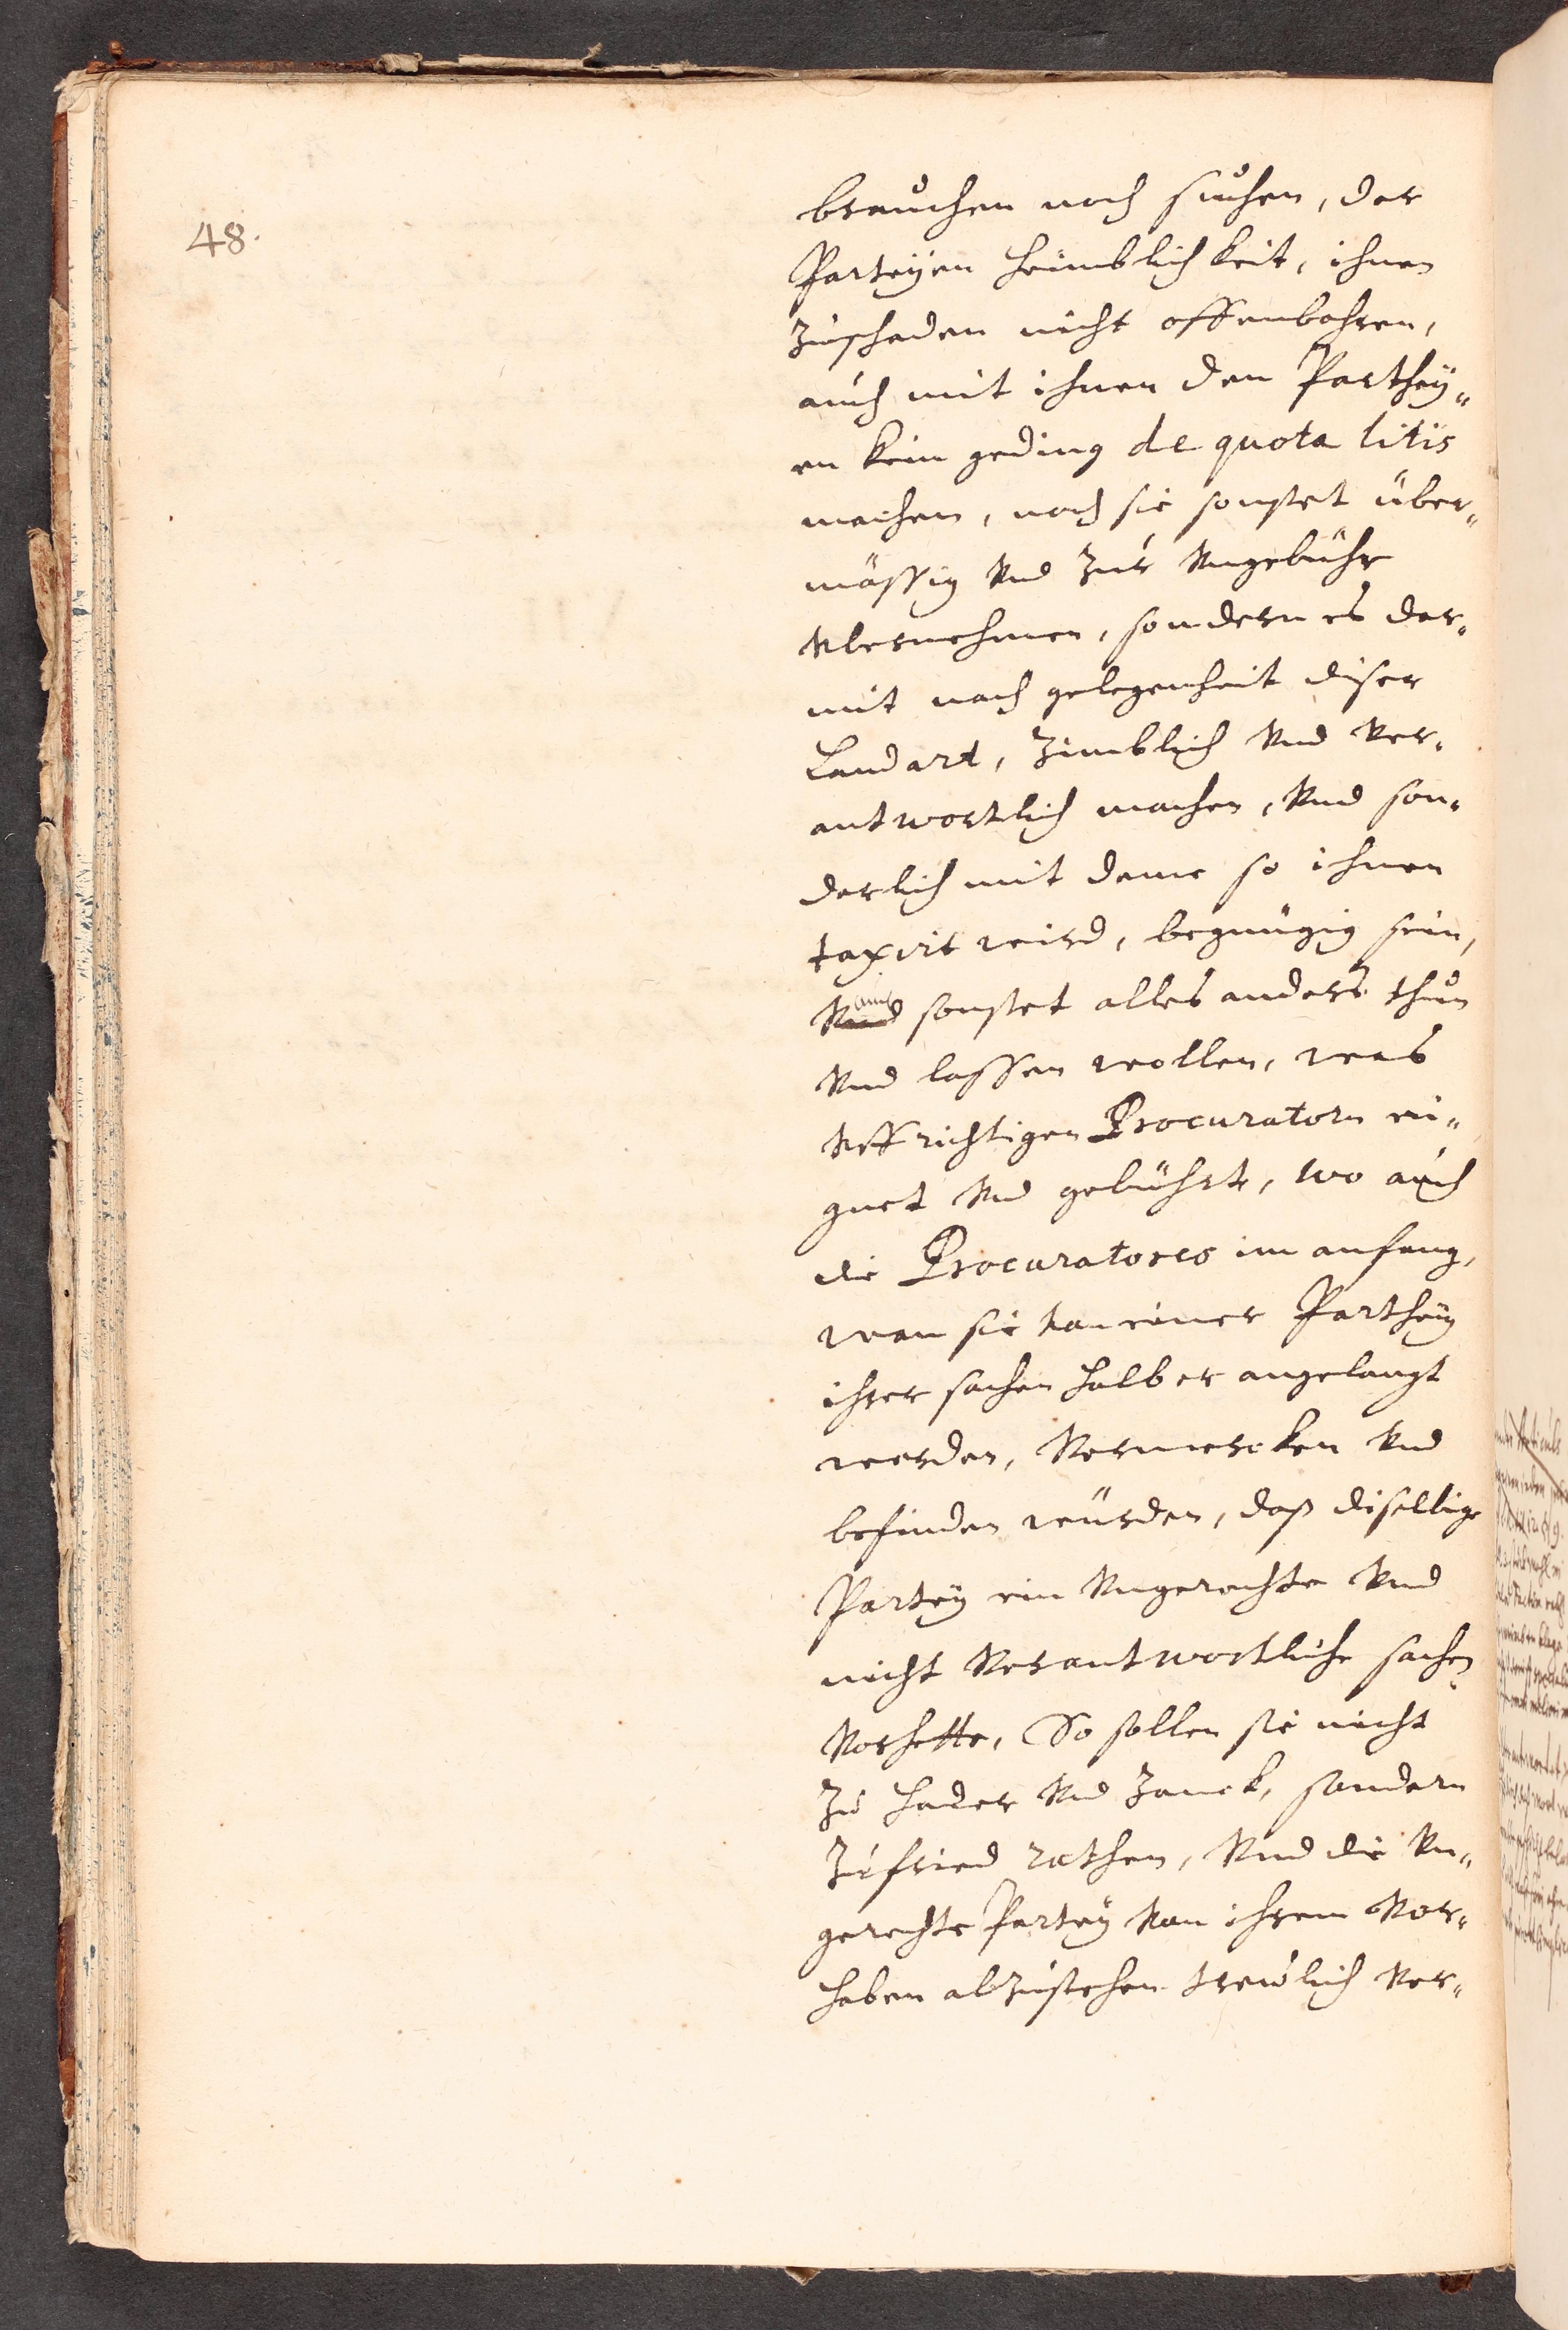 48.
brauchen noch suchen, der
Parteÿen heimblichkeit, ihnen
zuschaden nicht offenbahren,
auch mit ihnen den Parthey„
en kein geding de quota litis
machen, noch sie sonstet über„
mässig vnd zur vngebühr
vbernehmen, sondern es dar„
mit nach gelegenheit diser
Landart, zimblich vnd ver„
antwortlich machen, vnd son„
derlich mit deme so ihnen
taxirt wird, begnügig sein,
auch
Vnd sonstet alles anders thun
vnd lassen wollen, was
vffrichtigen Procuratorn ei„
gnet vnd gebührt, wo auch
die Procuratores im anfang,
wan sie van einer Partheÿ
ihrer sachen halber angelangt
werden, vermercken vnd
befinden würden, daß diselbige
Parteÿ ein vngerechte vnd
nicht verantwortliche sachen
vorhette, So sollen sie nicht
zu hader vnd zanck, sondern
zufried rathen, vnd die vn„
gerechte Parteÿ van ihrem vor„
haben abzustehen trewlich ver„